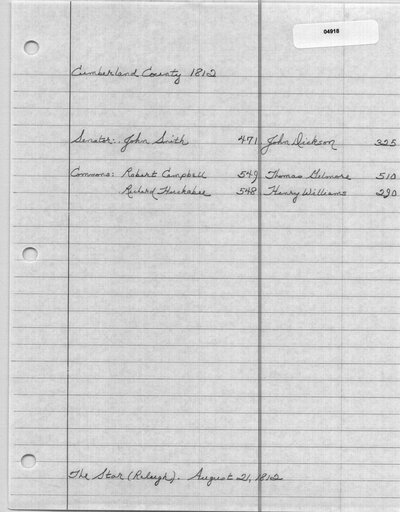 04918
Cumberland County 1812
Senator: John Smith 471 John Dickson 325
Commons: Robert Campbell 549 Thomas Gilmore 510
Richard Huckabee 548 Henry Williams 290
The Star (Raleigh). August 21, 1812